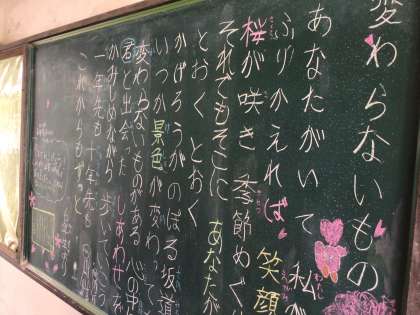 変わらないもの
あなたがいて 私が
ふりかえれば 笑顔
桜が咲き 季節めぐ
それでもそこに あなたが
とおく とおく
かげろうがのぼる坂道
いつか景色が変わって
変わらないものがある 心の中
君と出会った しあわせを
かみしめながら 歩いていこう
一年先も 十年先も
これからもずっと